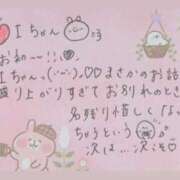 Iちゃん
お初ー!!
Iちゃん。(´∵`)。♡♡まさかのお話
盛り上がりすぎてお別れのとき
名残り惜しくなっ
ちゃうという
次は…次こそ